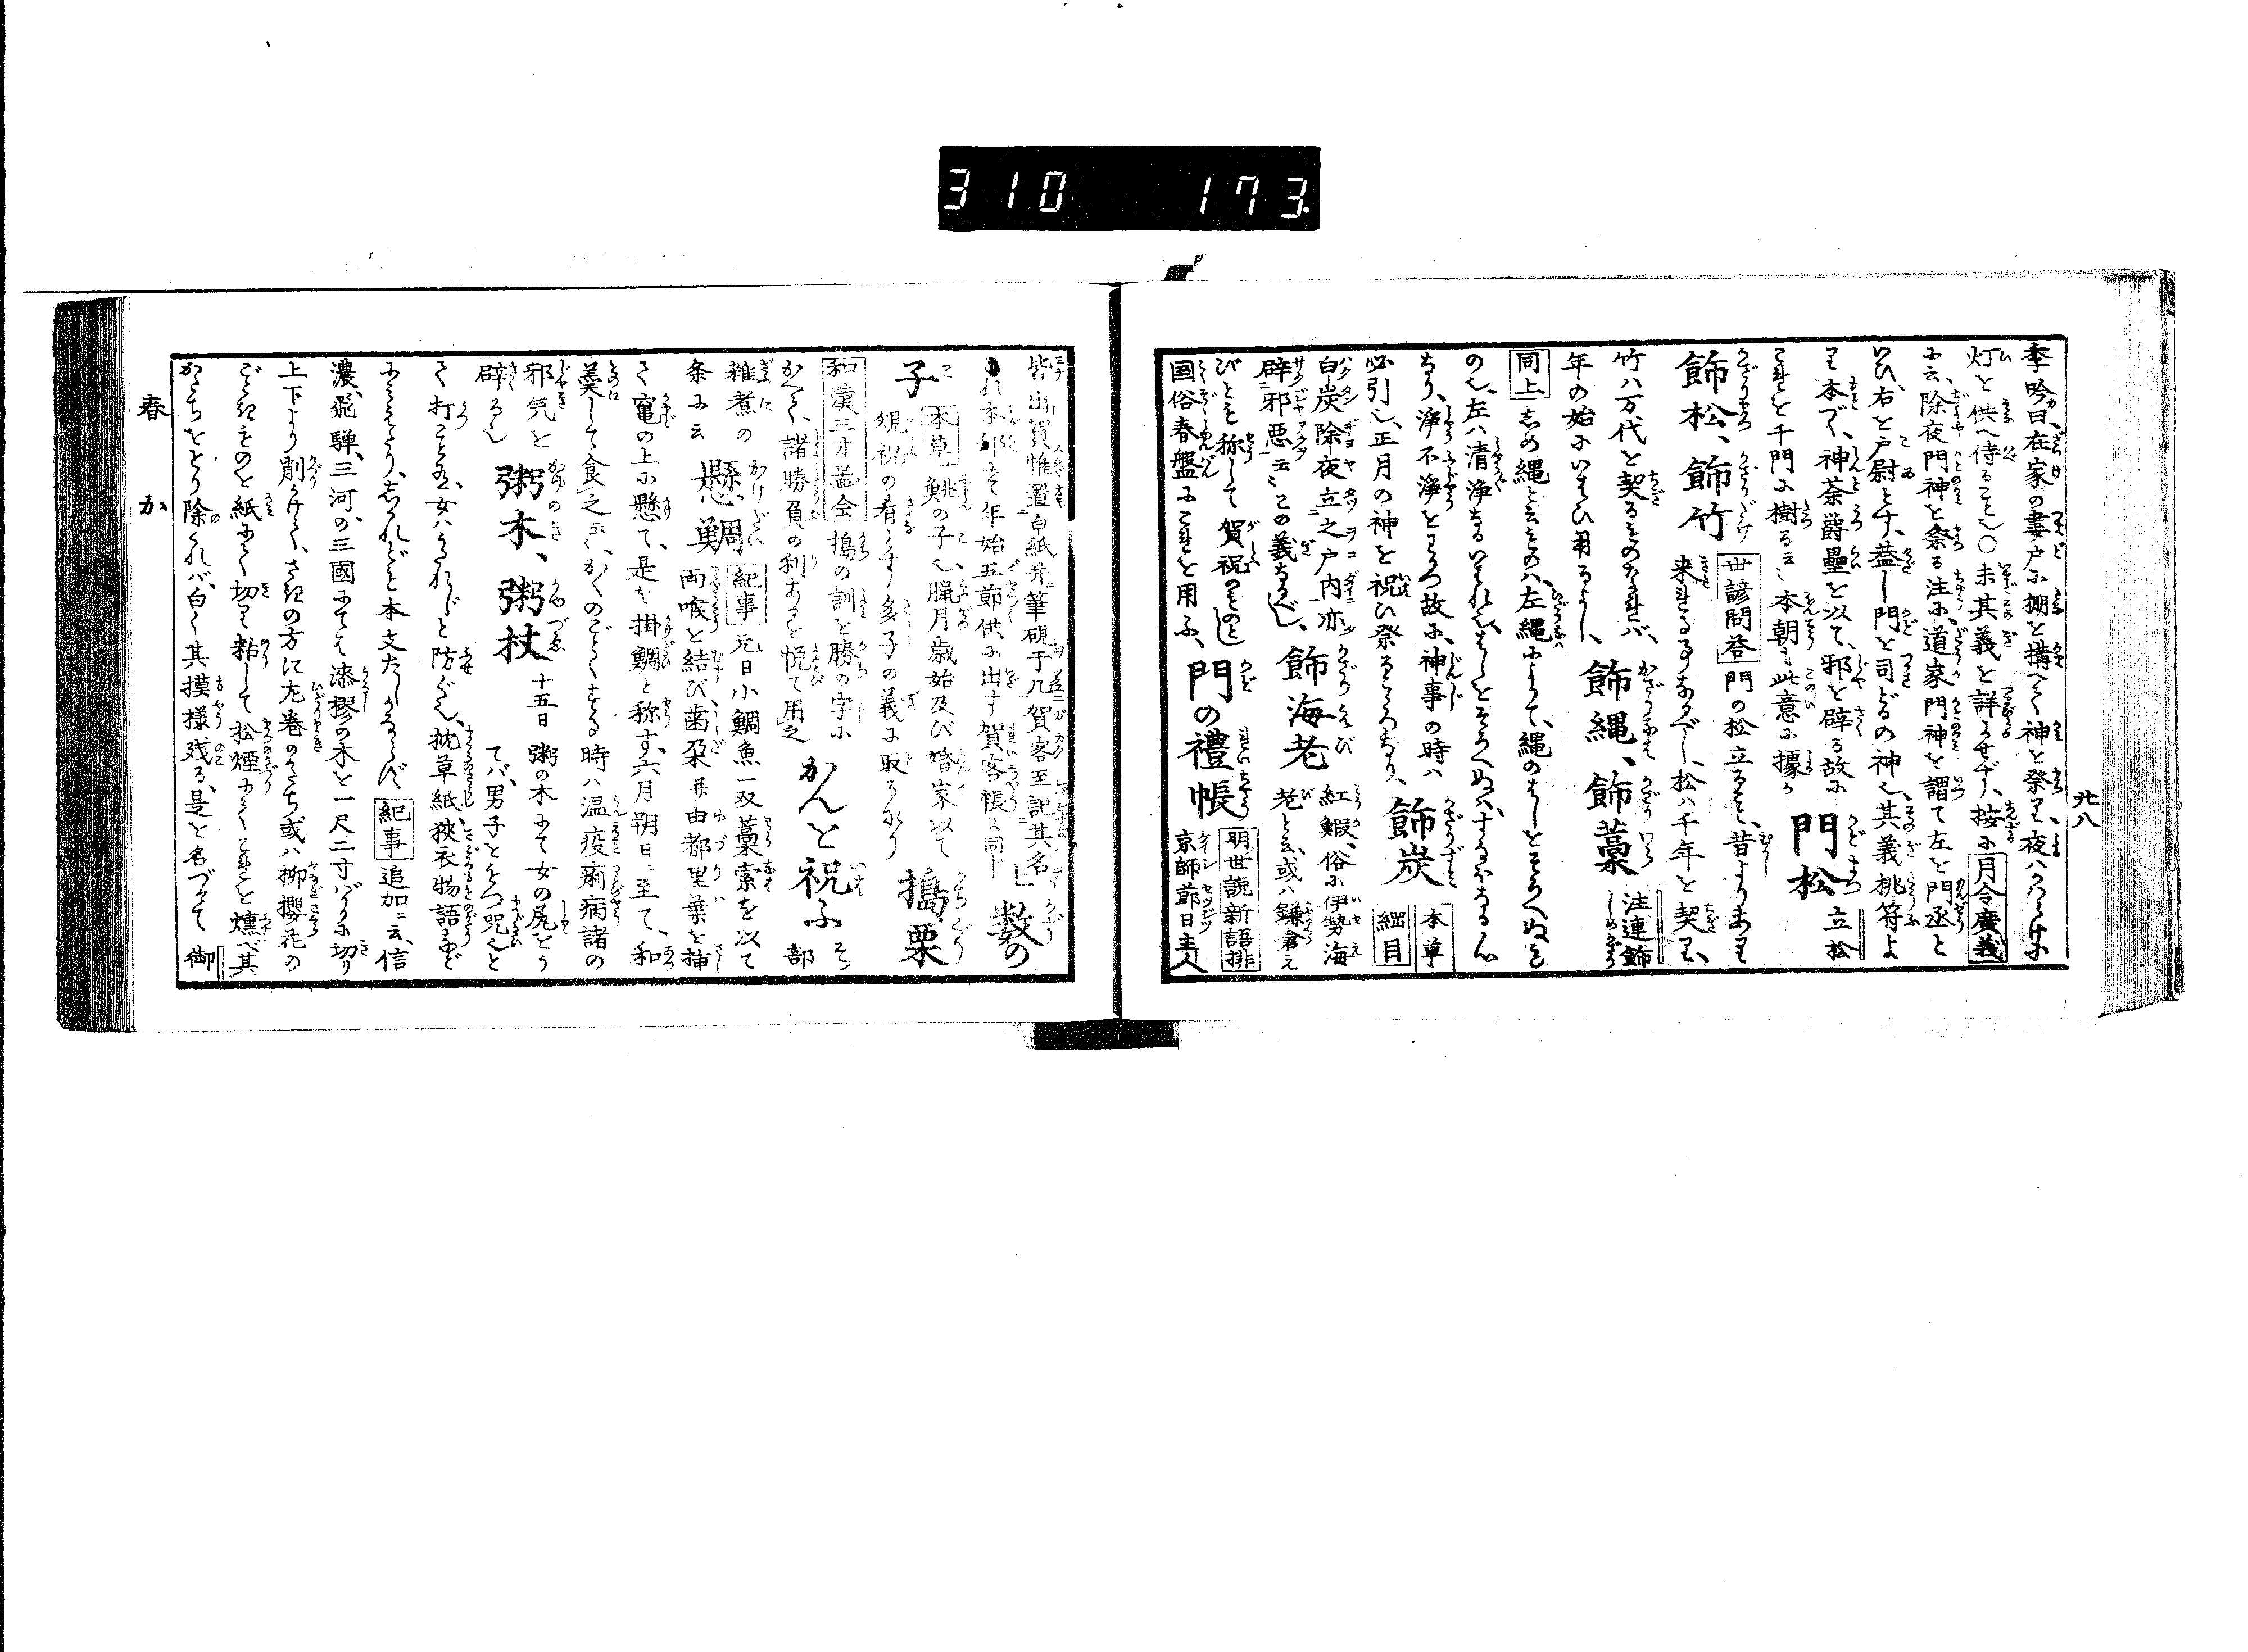 310 173.
廿八
季吟曰、在家の妻戸に棚を構へて、神を祭り、夜ハかならず
灯を供へ侍ること也○未其義を詳にせず、按に月令廣義
に云、除夜門神を祭る注に、道家門神を謂て左を門丞と
いひ、右を戸尉とす、蓋し門を司どるの神也、其義桃符よ
り本づく、神荼欝壘を以て、邪を辟る故に 門松 立松
これを千門に樹る云々、本朝も此意に據か
飾松、飾竹 世諺問答 門の松立ること、昔よりあり
来れる事なるべし、松ハ千年を契り、
竹ハ万代を契るものなれバ、 飾縄、飾藁 注連飾 しめかざり
年の始にいはひ用るよし、
同上 しめ縄と云ものハ、左縄によりて、縄のはしをそろへぬも
の也、左ハ清浄なるいはれ也、はしをそろへぬハ、すなほなる心
なり、浄不浄をわかつ故に、神事の時ハ
必引也、正月の神を祝ひ祭るこころなり、 飾炭 本草 綱目
白炭除夜立之戸内亦
辟邪悪云々この義なるべし、 飾海老 紅鰕、俗に伊勢海
老と云、或ハ鎌倉え
びとも称して賀祝のものとし
国俗春盤にこれを用ふ、 門の禮帳 明世説新語排
京師節日主人
皆出賀惟置白紙并筆硯于几賀客至記其名
これ本邦にて年始五節供に出す賀客帳に同じ 数の
子 本草 鯡の子也、臘月歳始及び婚家以て
規祝の肴とす多子の義に取るなり 搗栗
和漢三才圖会 搗の訓を勝の字に
かへて、諸勝負の利あるを悦て用之 かんを祝ふ
雑煮の部
条に云 懸鯛 紀事 元日小鯛魚一双藁索を以て
両喉を結び、歯朶并由都里葉を挿
て竈の上に懸て、是を掛鯛と称す、六月朔日ニ至て、和
羹にして食之云々、かくのごとくする時ハ温疫痢病諸の
邪気を
辟ると也 粥木、粥杖 十五日 粥の木にて女の尻をう
てバ、男子をもつ咒也と
て打こと也、女ハうたれじと防ぐ也、枕草紙、狭衣物語など
にみえたり、しかれども本文たしかならず 紀事 追加ニ云、信
濃、飛騨、三河の三國にてハ漆樛の木を一尺二寸ばかりに切り
上下より削かけて、さきの方に左巻のかたち或ハ柳櫻花の
ごときものを紙にて切り粘して松煙にてこれを燻べ其
かたちをとり除くれバ、白く其摸様残る、是を名づけて 御
春 か